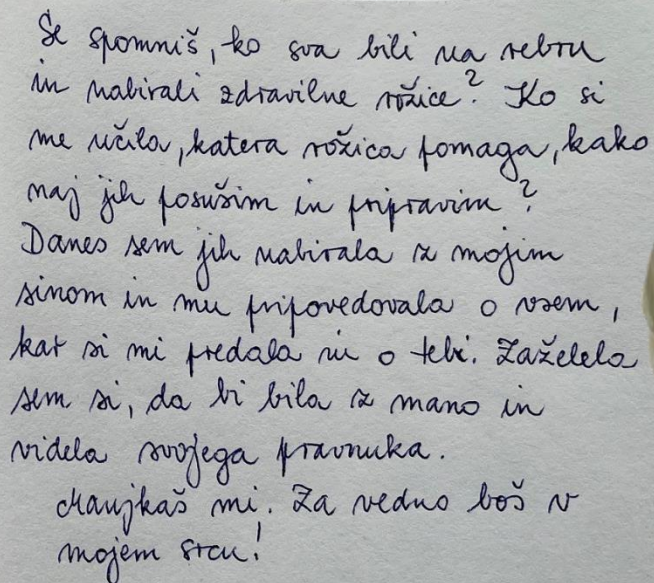 Se spomniš, ko sva bili na rebru
in nabirali zdravilne rožice? Ko si
me učila, katera rožica pomaga, kako
naj jih posušim in pripravim?
Danes sem jih nabirala z mojim
sinom in mu pripovedovala o vsem,
kar si mi predala in o tebi. Zaželela
sem si, da bi bila z mano in
videla svojega pravnuka.
Manjkaš mi. Za vedno boš v
mojem srcu!